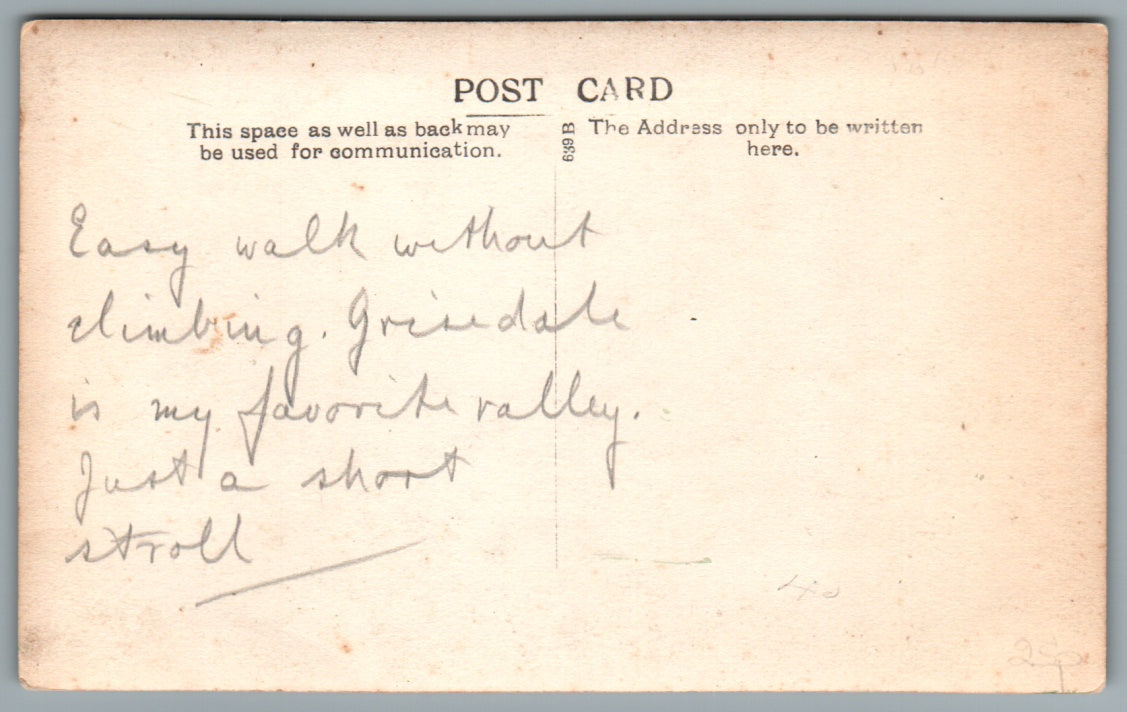 POST CARD
This space as well as back may
be used for communication.
639 B
The Address only to be written
here.
Easy walk without
climbing. Grisedale
is my favorite valley.
Just a short
stroll